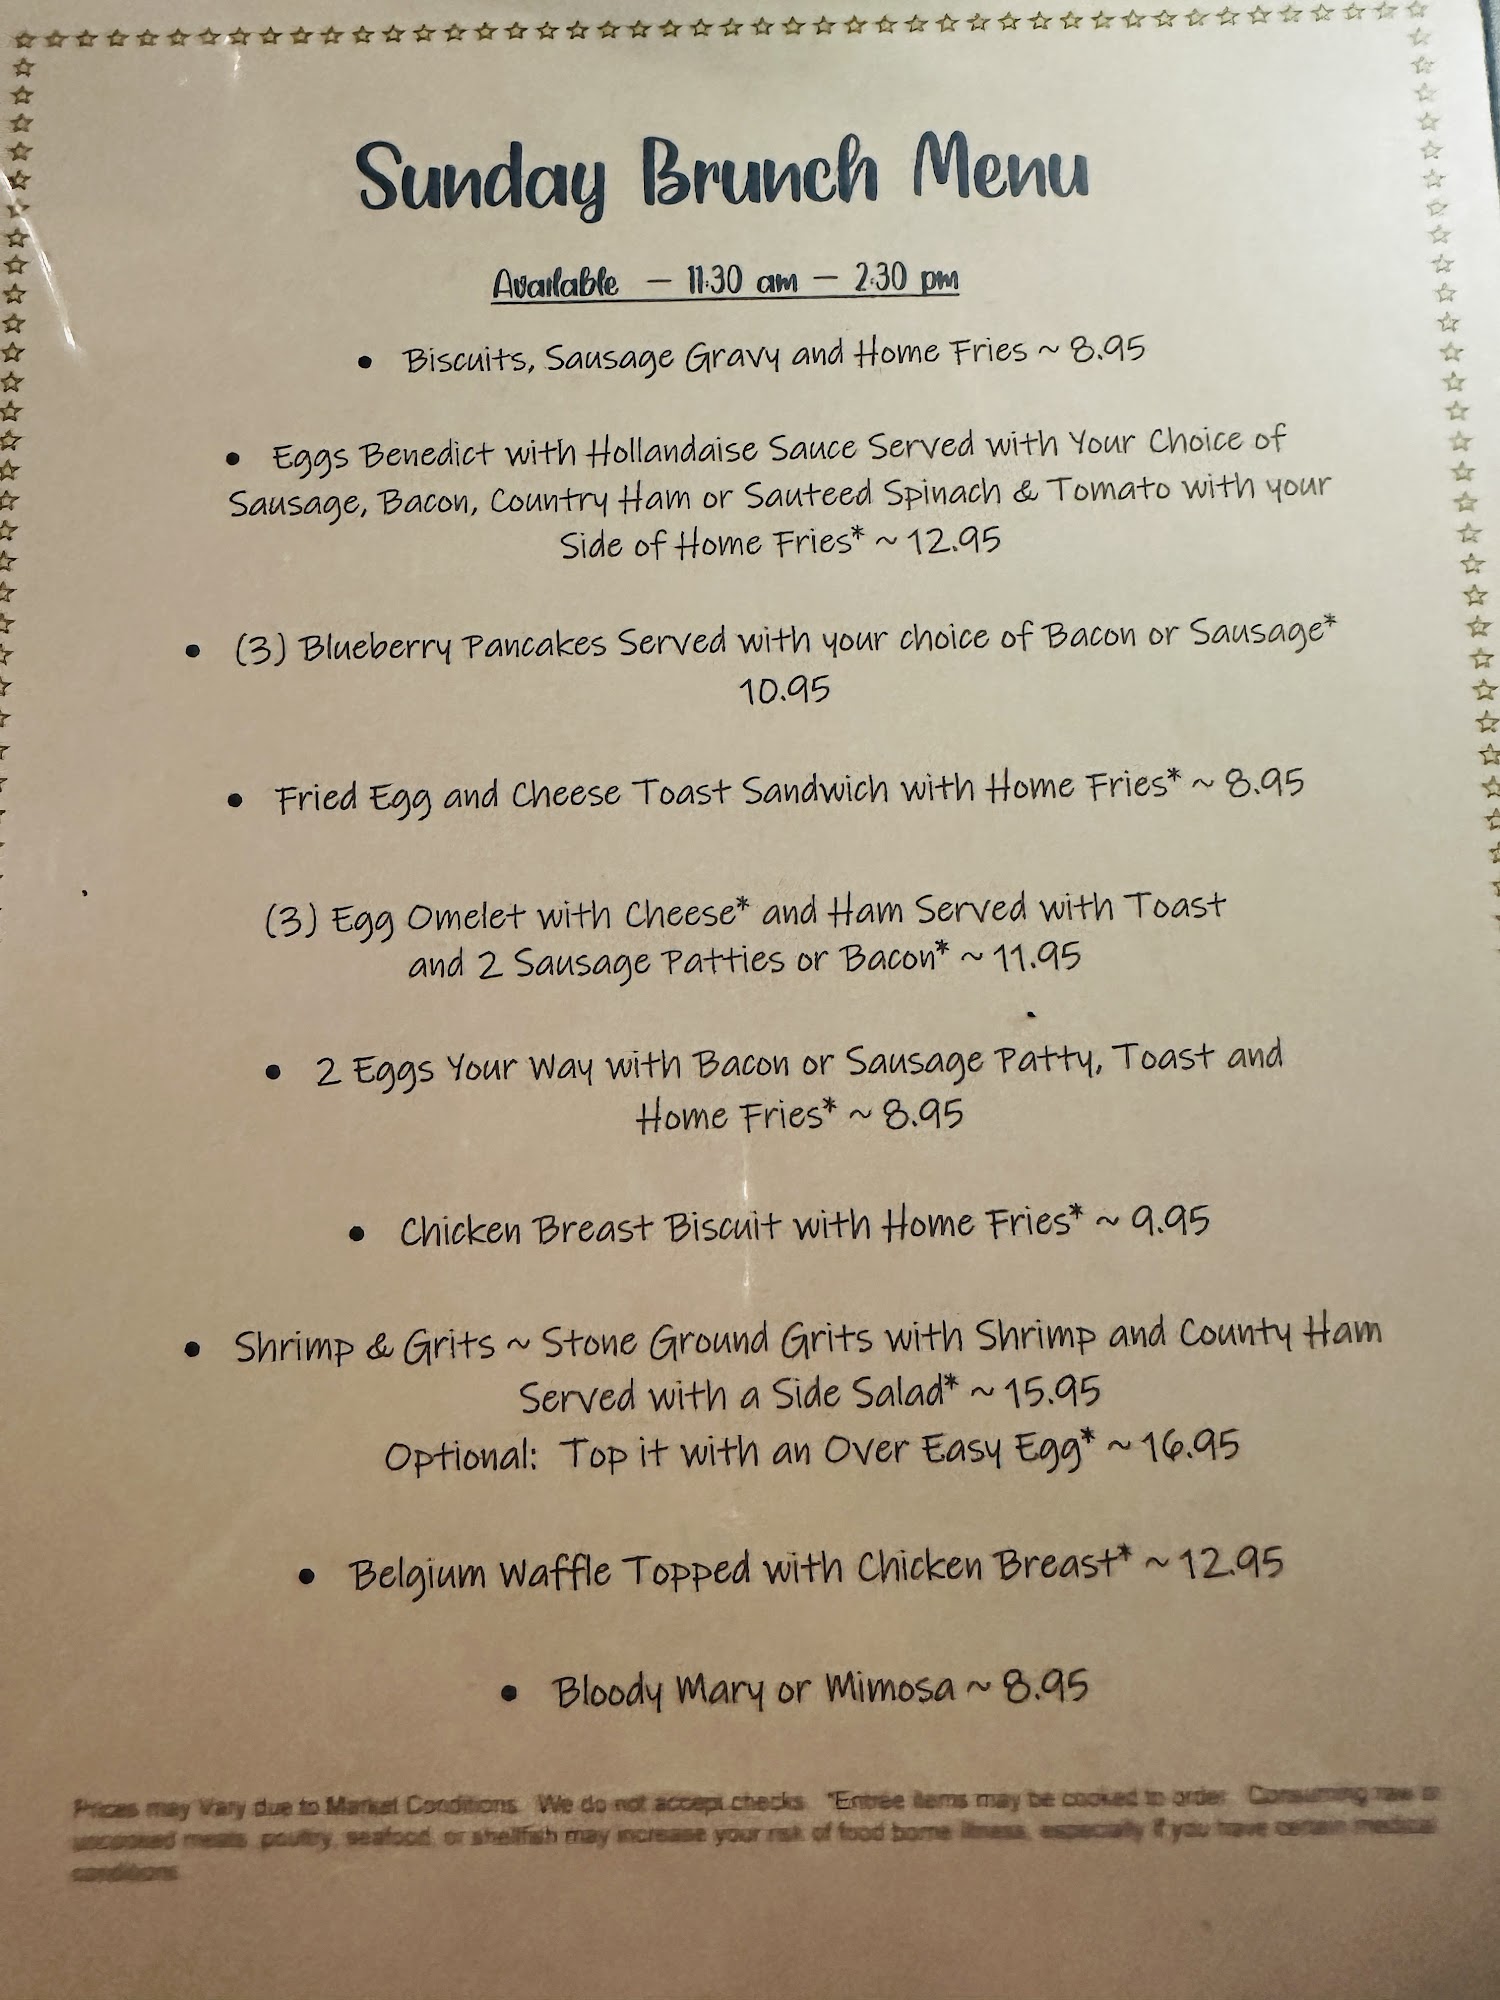 Sunday Brunch Menu
Available – 11:30 am – 2:30 pm
• Biscuits, Sausage Gravy and Home Fries ~ 8.95
• Eggs Benedict with Hollandaise Sauce Served with Your Choice of
Sausage, Bacon, Country Ham or Sauteed Spinach & Tomato with your
Side of Home Fries* ~ 12.95
• (3) Blueberry Pancakes Served with your choice of Bacon or Sausage*
10.95
• Fried Egg and Cheese Toast Sandwich with Home Fries* ~ 8.95
(3) Egg Omelet with Cheese* and Ham Served with Toast
and 2 Sausage Patties or Bacon* ~ 11.95
• 2 Eggs Your Way with Bacon or Sausage Patty, Toast and
Home Fries* ~ 8.95
• Chicken Breast Biscuit with Home Fries* ~ 9.95
• Shrimp & Grits ~ Stone Ground Grits with Shrimp and County Ham
Served with a Side Salad* ~ 15.95
Optional: Top it with an Over Easy Egg* ~ 16.95
• Belgium Waffle Topped with Chicken Breast* ~ 12.95
• Bloody Mary or Mimosa ~ 8.95
Prices may Vary due to Market Conditions. We do not accept checks. *Entree items may be cooked to order. Consuming raw or
uncooked meats, poultry, seafood, or shellfish may increase your risk of food borne illness, especially if you have certain medical
conditions.